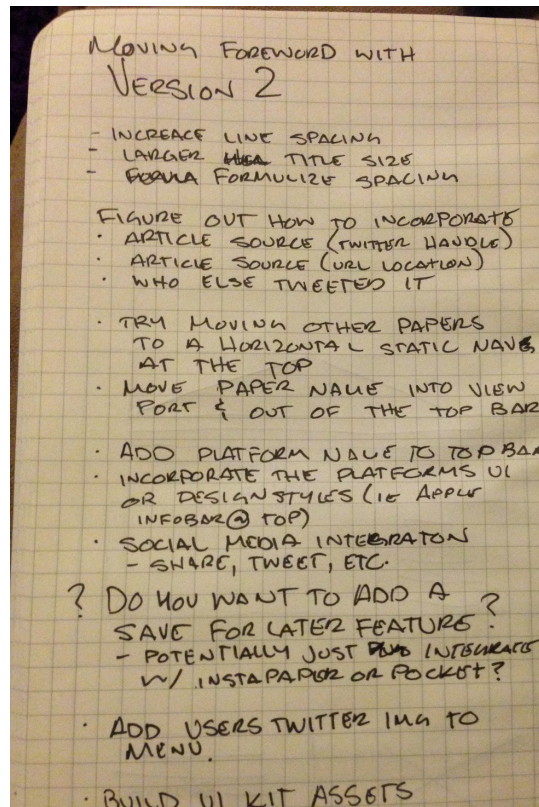 MOVING FOREWORD WITH
VERSION 2
- INCREACE LINE SPACING
- LARGER TITLE SIZE
- FORMULIZE SPACING
FIGURE OUT HOW TO INCORPORATE
· ARTICLE SOURCE (TWITTER HANDLE)
· ARTICLE SOURCE (URL LOCATION)
· WHO ELSE TWEETED IT
· TRY MOVING OTHER PAPERS
TO A HORIZONTAL STATIC NAV
AT THE TOP
· MOVE PAPER NAME INTO VIEW
PORT & OUT OF THE TOP BAR
· ADD PLATFORM NAME TO TOP BAR
· INCORPORATE THE PLATFORMS UI
OR DESIGN STYLES (IE APPLE
INFOBAR @ TOP)
· SOCIAL MEDIA INTEGRATON
- SHARE, TWEET, ETC.
? DO YOU WANT TO ADD A
SAVE FOR LATER FEATURE?
- POTENTIALLY JUST INTEGRATE
W/ INSTAPAPER OR POCKET?
· ADD USERS TWITTER IMG TO
MENU.
· BUILD UI KIT ASSETS